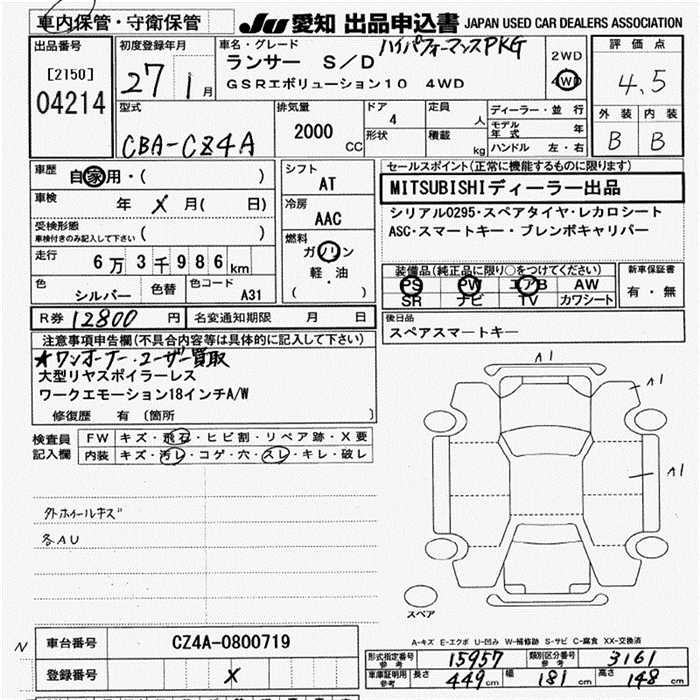 車内保管・守衛保管
JU 愛知 出品申込書 JAPAN USED CAR DEALERS ASSOCIATION
出品番号
[2150]
04214
初度登録年月
27 1月
車名・グレード ハイパフォーマンスPKG
ランサー S/D
GSRエボリューション10 4WD
2WD
4WD
評価点
4.5
外装 内装
B B
型式
CBA-CZ4A
排気量
2000 CC
ドア
4
形状
定員
人
積載
kg
ディーラー・並行
モデル年式 年
ハンドル 左・右
車歴
自家用・( )
車検
年 X 月( 日)
受検形態
車検付きのみ記入して下さい ( )
走行
6万3千986km
色
シルバー
色替
色コード
A31
シフト
AT
冷房
AAC
燃料
ガソリン
軽・油
( )
セールスポイント(正常に機能するものに限ります)
MITSUBISHIディーラー出品
シリアル0295・スペアタイヤ・レカロシート
ASC・スマートキー・ブレンボキャリパー
装備品(純正品に限り○をつけてください)
PS PW エアB AW
SR ナビ TV カワシート
新車保証書
有・無
R券 12800 円
名変通知期限 月 日
後日品
スペアスマートキー
注意事項申告欄(不具合内容等は具体的に記入して下さい)
★ワンオーナー・ユーザー買取
大型リヤスポイラーレス
ワークエモーション18インチA/W
修復歴 有 〔箇所 〕
検査員記入欄
FW キズ・飛石・ヒビ割・リペア跡・X要
内装 キズ・汚レ・コゲ・穴・スレ・キレ・破レ
外ホイールキズ
各AU
A1
A1
A1
スペア
A-キズ E-エクボ U-凹み W-補修跡 S-サビ C-腐食 XX-交換済
N
車台番号 CZ4A-0800719
登録番号 X
形式指定番号 参考 15957 類別区分番号 参考 3161
車庫証明用 参考 長さ 449cm 幅 181cm 高さ 148cm